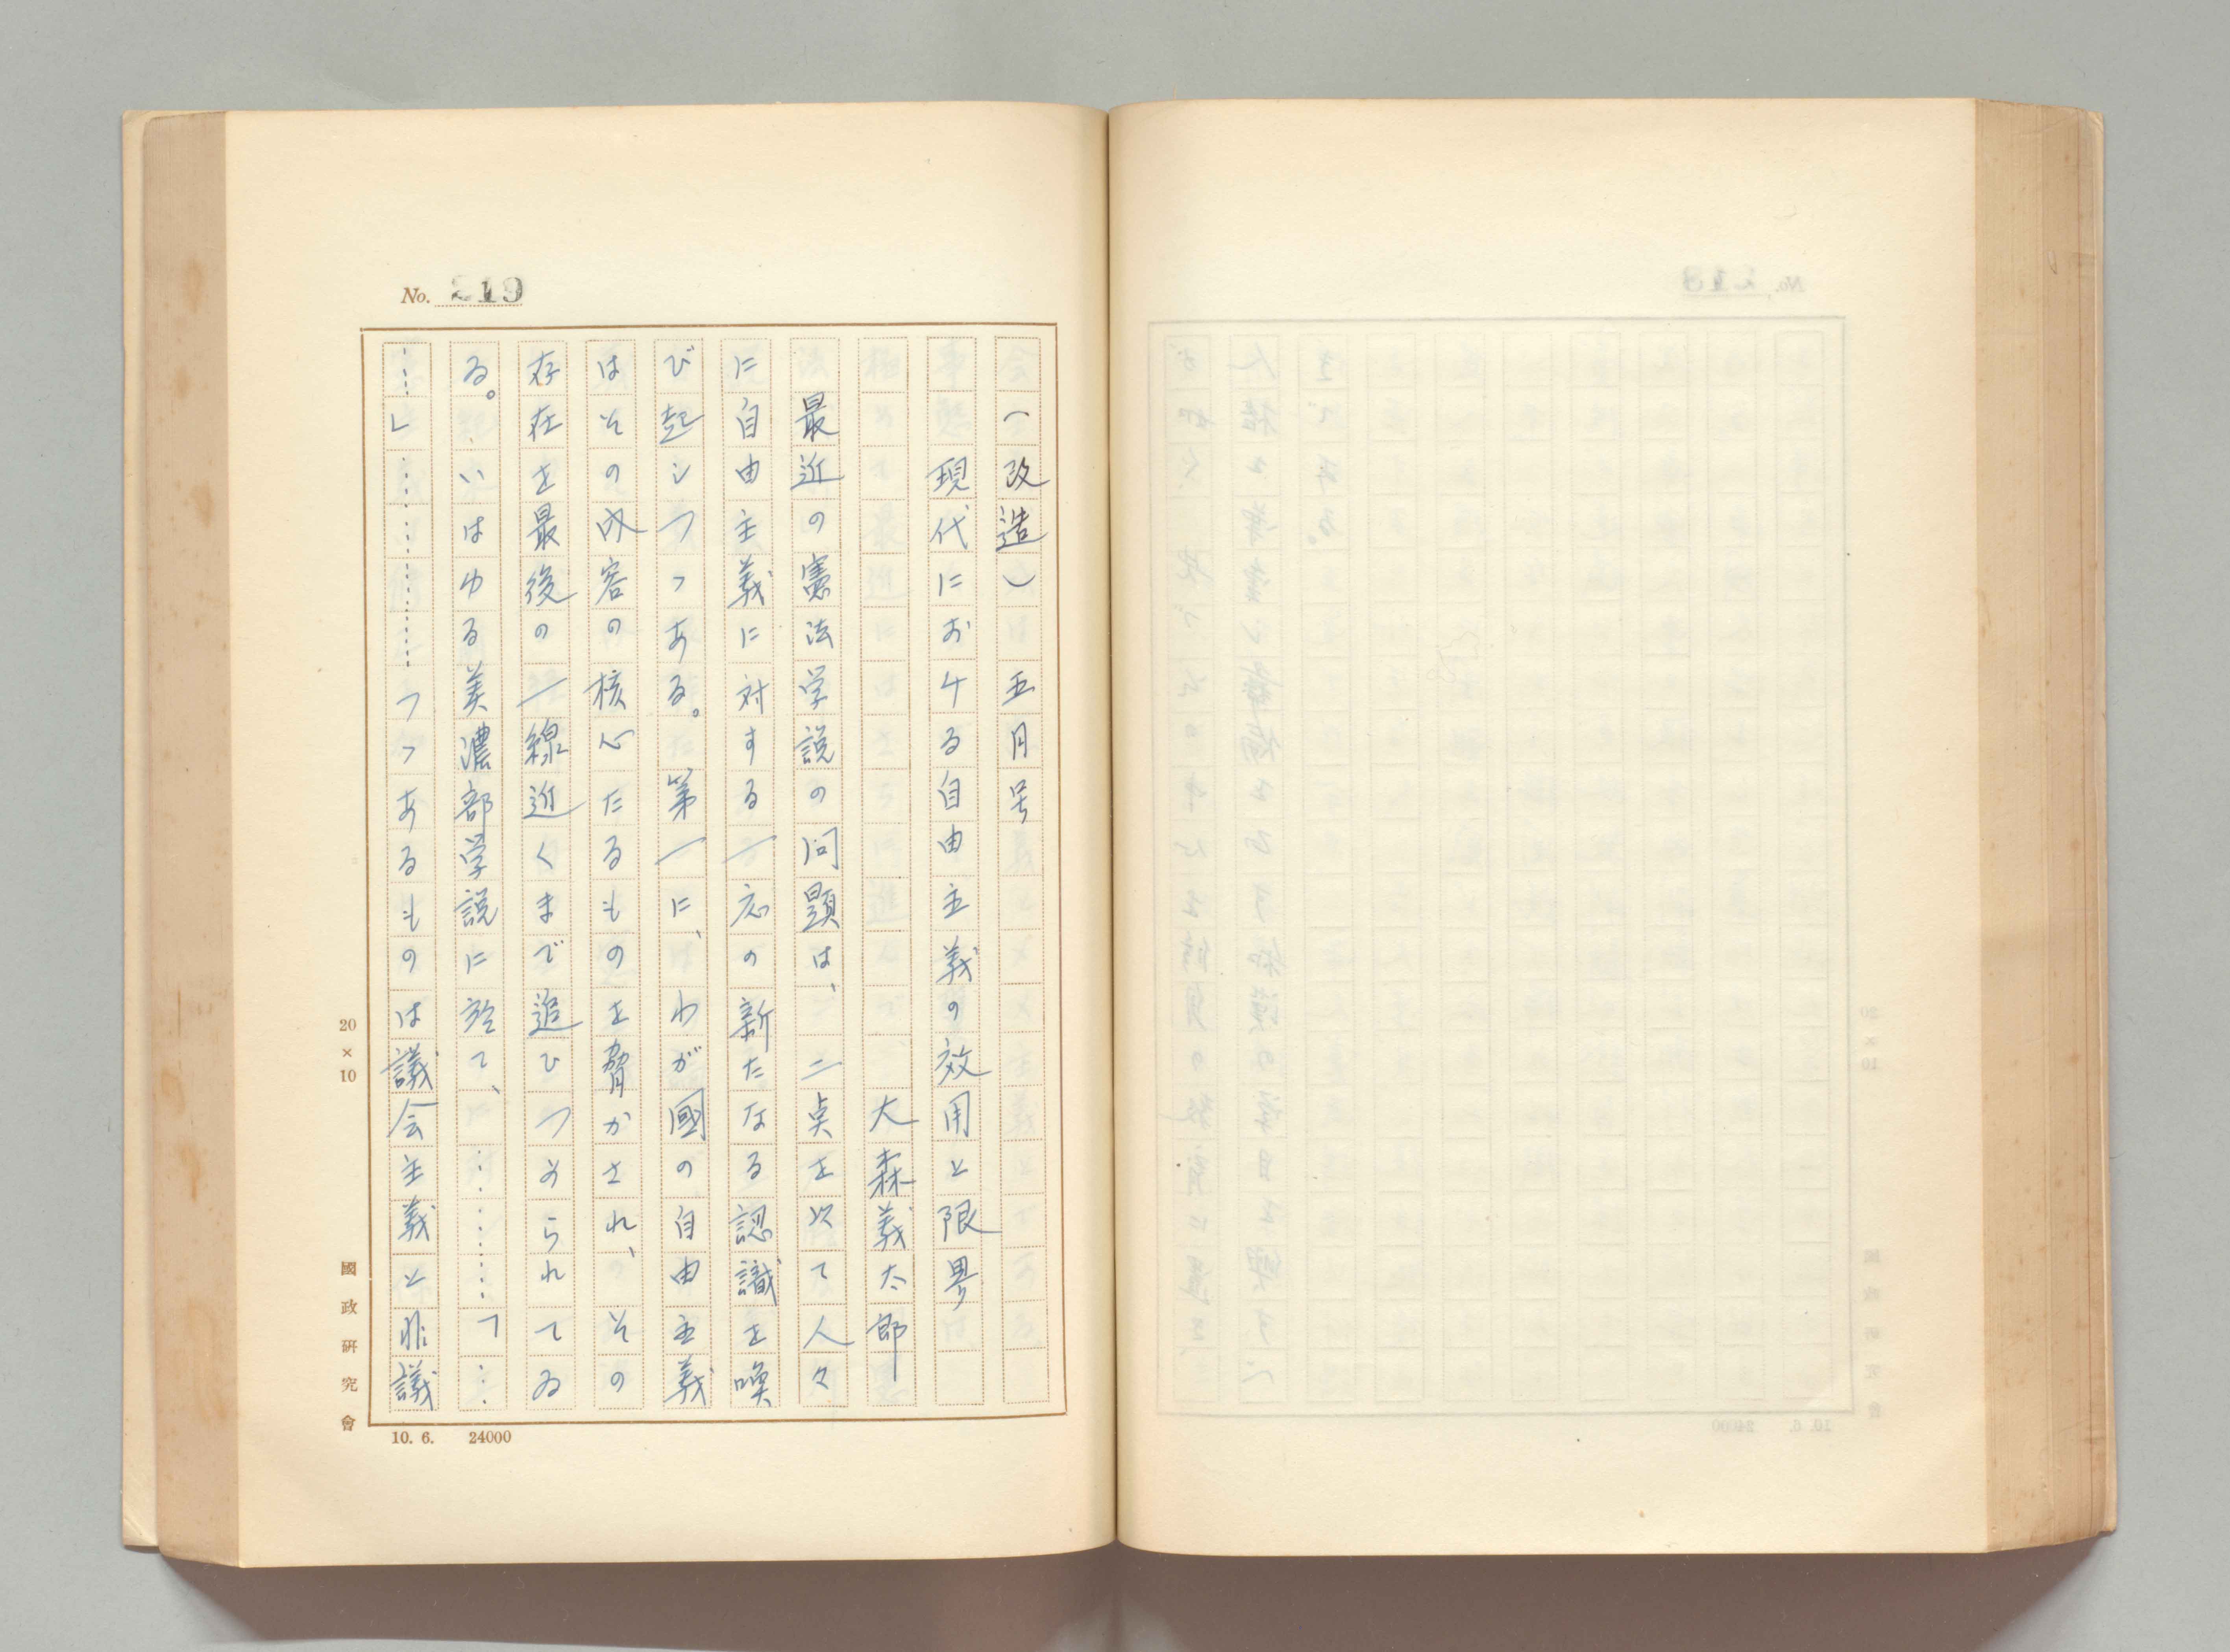 No. 219
(改造) 五月号
現代におケる自由主義の效用と限界
大森義太郎
最近の憲法学説の問題は、二点を以て人々
に自由主義に対する一応の新たなる認識を喚
び起しつつある。第一に、わが國の自由主義
はその内容の核心たるものを脅かされ、その
存在を最後の一線近くまで追ひつめられてゐ
る。いはゆる美濃部学説に於て、………「…
…」………………つつあるものは議会主義と非議
20×10
國政研究會
10. 6. 24000